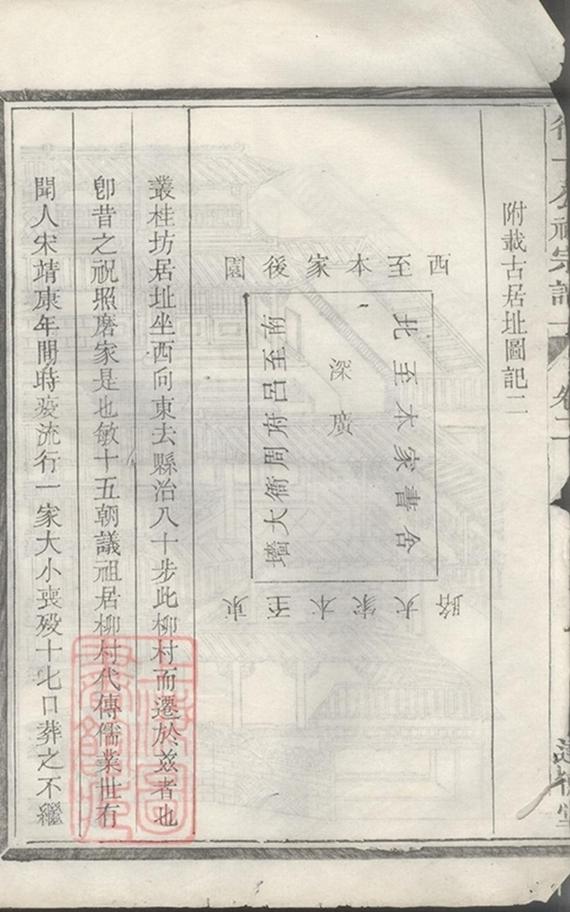 附載古居址圖記二
西至本家後園
北至本家書舍
深廣
南至呂府周衙大墻
東至本家大路
叢桂坊居址坐西向東去縣治八十步此柳村而遷於兹者也
卽昔之祝照磨家是也敏十五朝議祖居柳村代傳儒業世有
聞人宋靖康年間時疫流行一家大小喪殁十七口葬之不繼